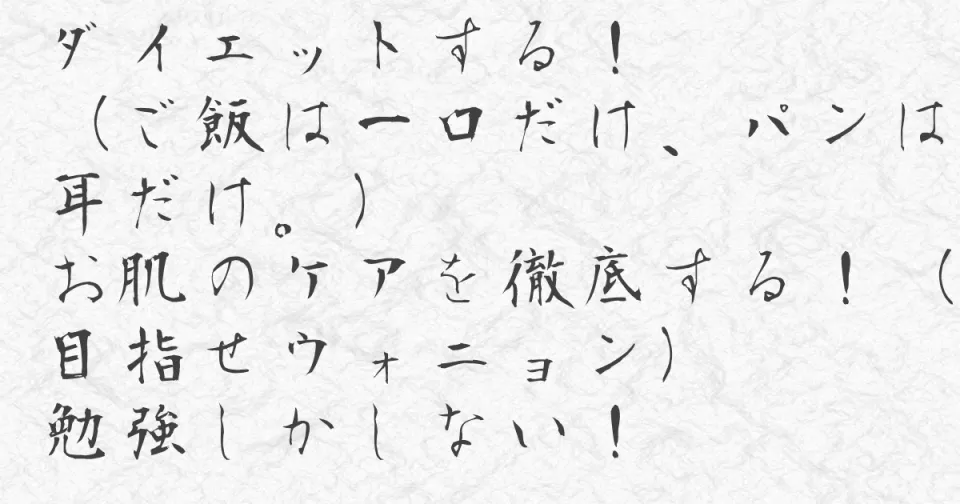 ダイエットする！
（ご飯は一口だけ、パンは
耳だけ。）
お肌のケアを徹底する！（
目指せウォニョン）
勉強しかしない！